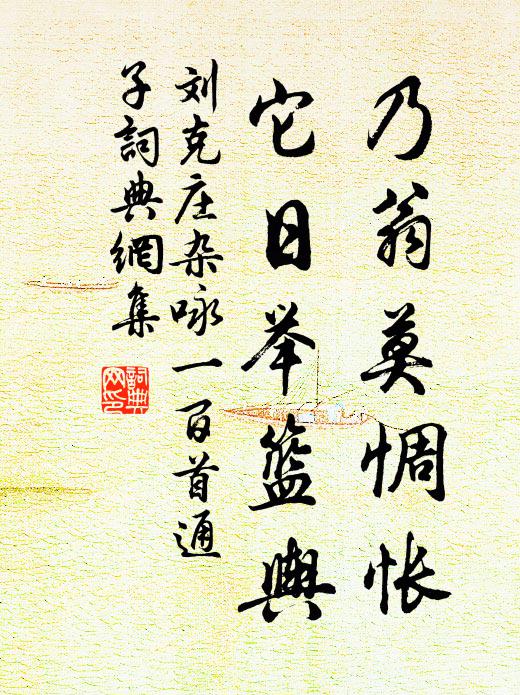 乃翁莫惆怅
它日举篮舆
刘克庄杂咏一百首通
子詞典網集
詞典网印